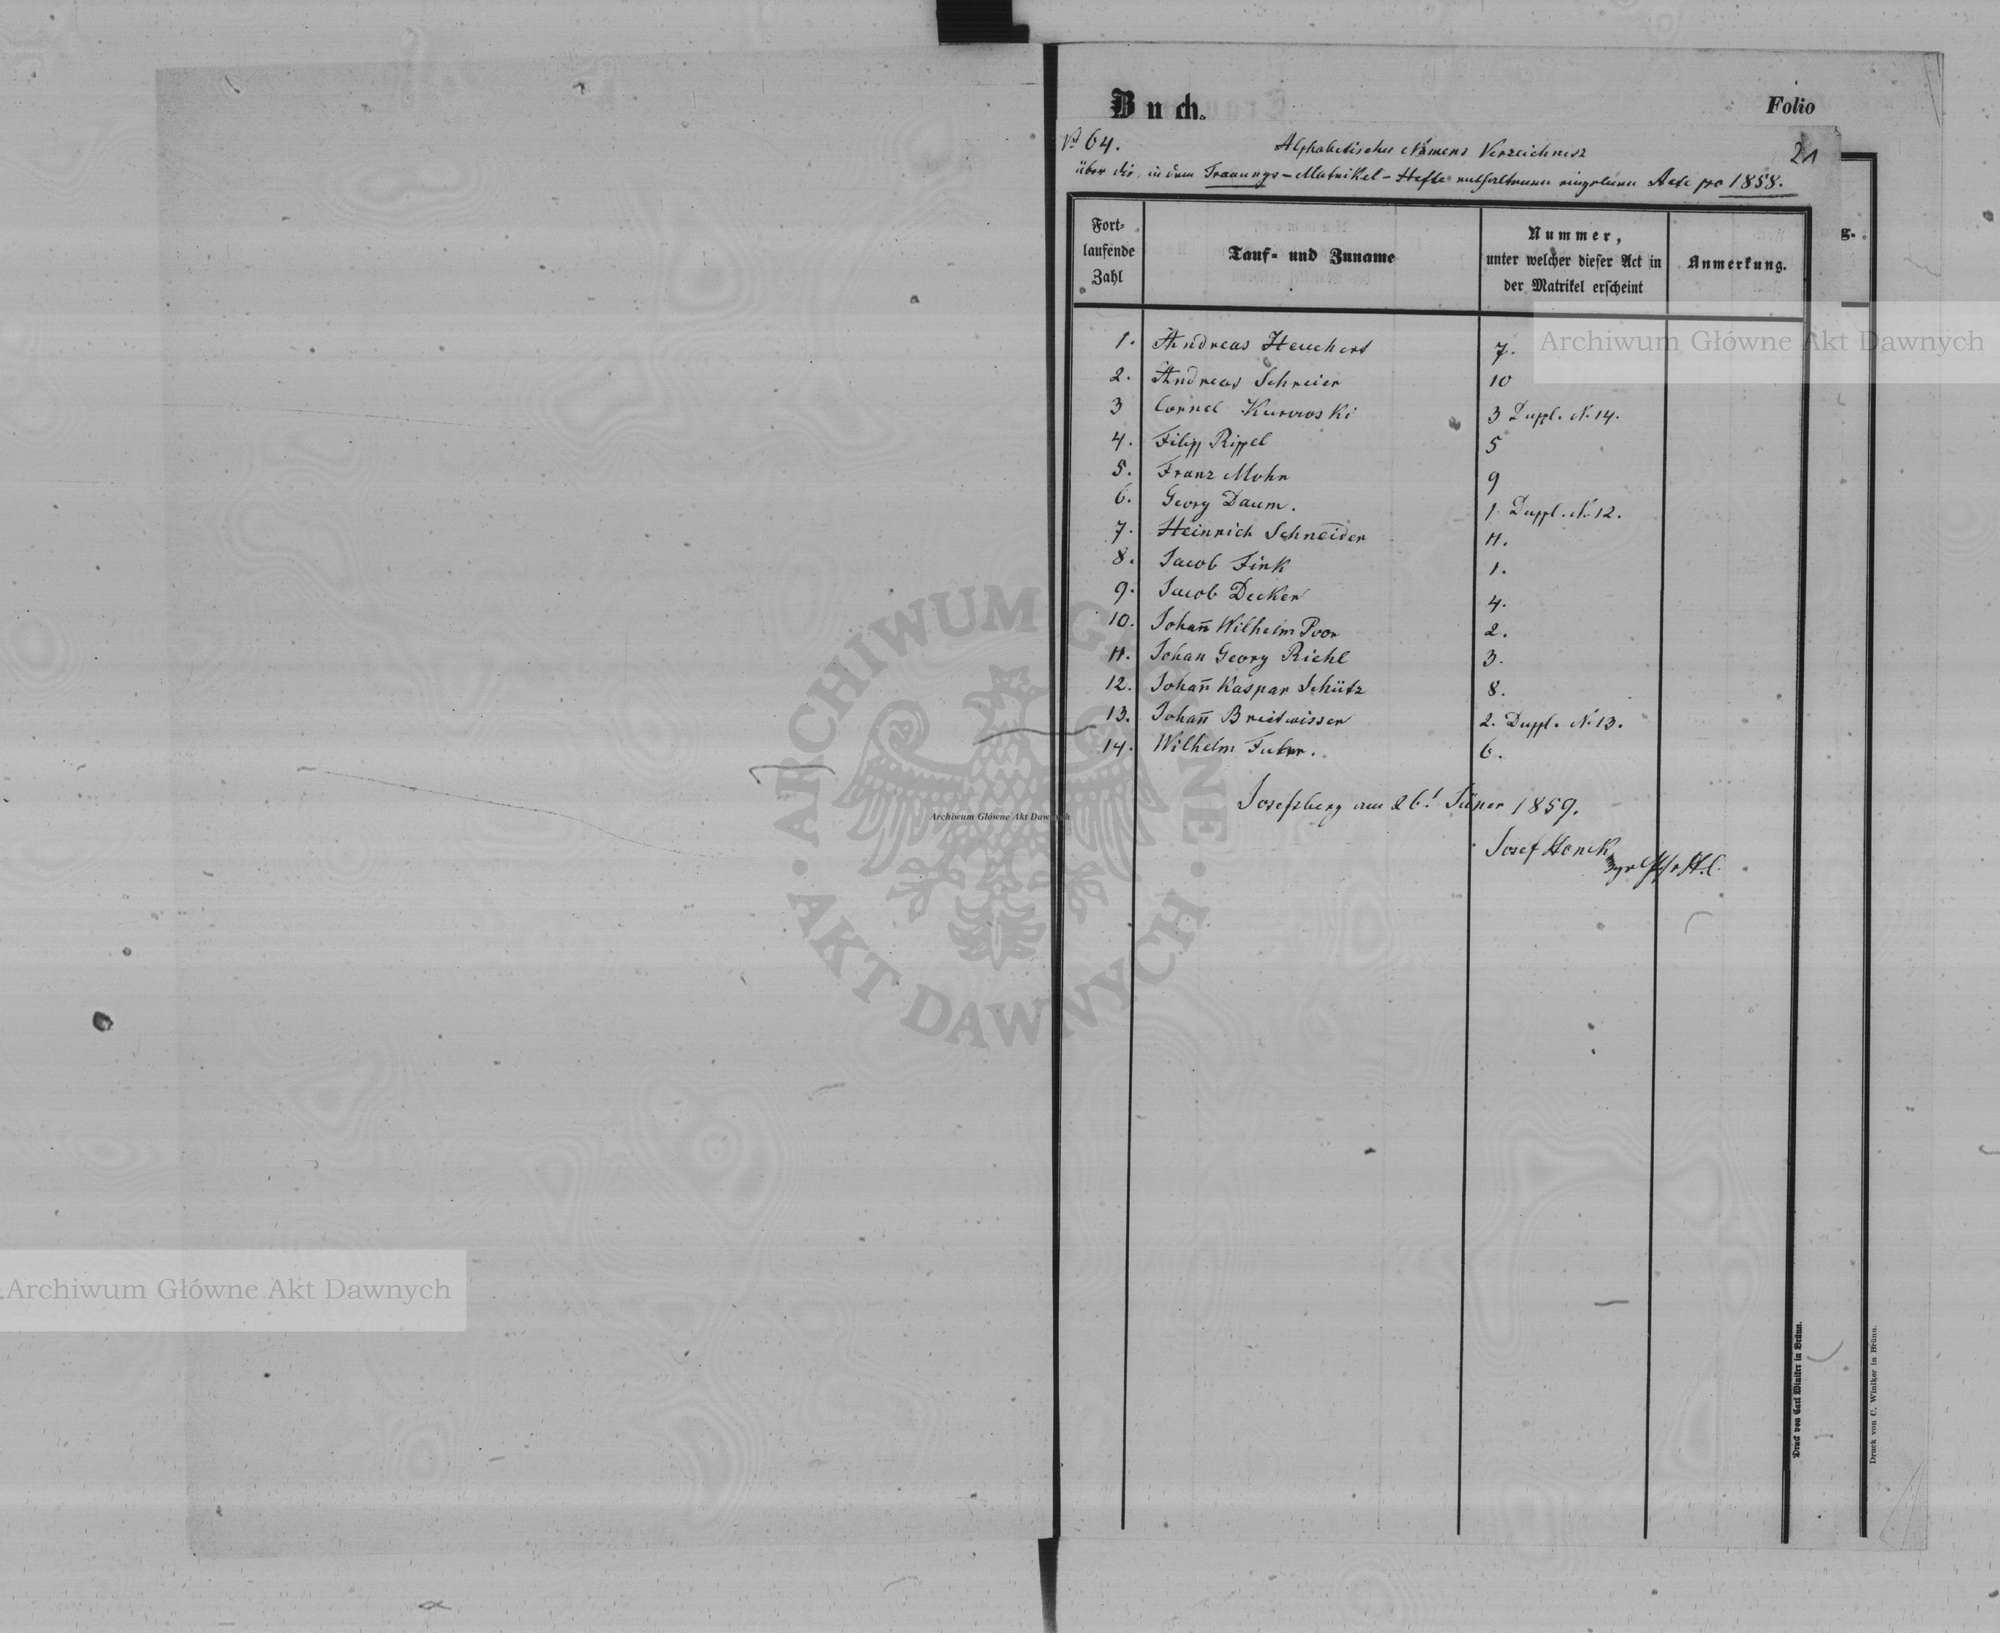 Buch.
Folio
21
No 64.
Alphabetisches Namens Verzeichnisz
über die, in dem Trauungs-Matrikel-Hefte enthaltenen einzelnen Acte pro 1858.
Fort-
laufende
Zahl
Tauf- und Zuname
Nummer,
unter welcher dieser Act in
der Matrikel erscheint
Anmerkung.
g.
1. Andreas Heuchert 7.
2. Andreas Schreier 10
3 Cornel Kurowski 3 Duppl. N. 14.
4. Filipp Rippel 5
5. Franz Mohr 9
6. Georg Daum. 1 Duppl. N. 12.
7. Heinrich Schneider 11.
8. Jacob Fink 1.
9. Jacob Decker 4.
10. Johan̄ Wilhelm Poor 2.
11. Johan Georg Riehl 3.
12. Johan̄ Kaspar Schütz 8.
13. Johan̄ Breitwisser 2. Duppl. N. 13.
14. Wilhelm 6.
Josefsberg am 26t Jäner 1859.
Josef
Druck von Carl Winiker in Brünn.
Druck von C. Winiker in Brünn.
Archiwum Główne Akt Dawnych
ARCHIWUM GŁÓWNE
AKT DAWNYCH
Archiwum Główne Akt Dawnych
Archiwum Główne Akt Dawnych